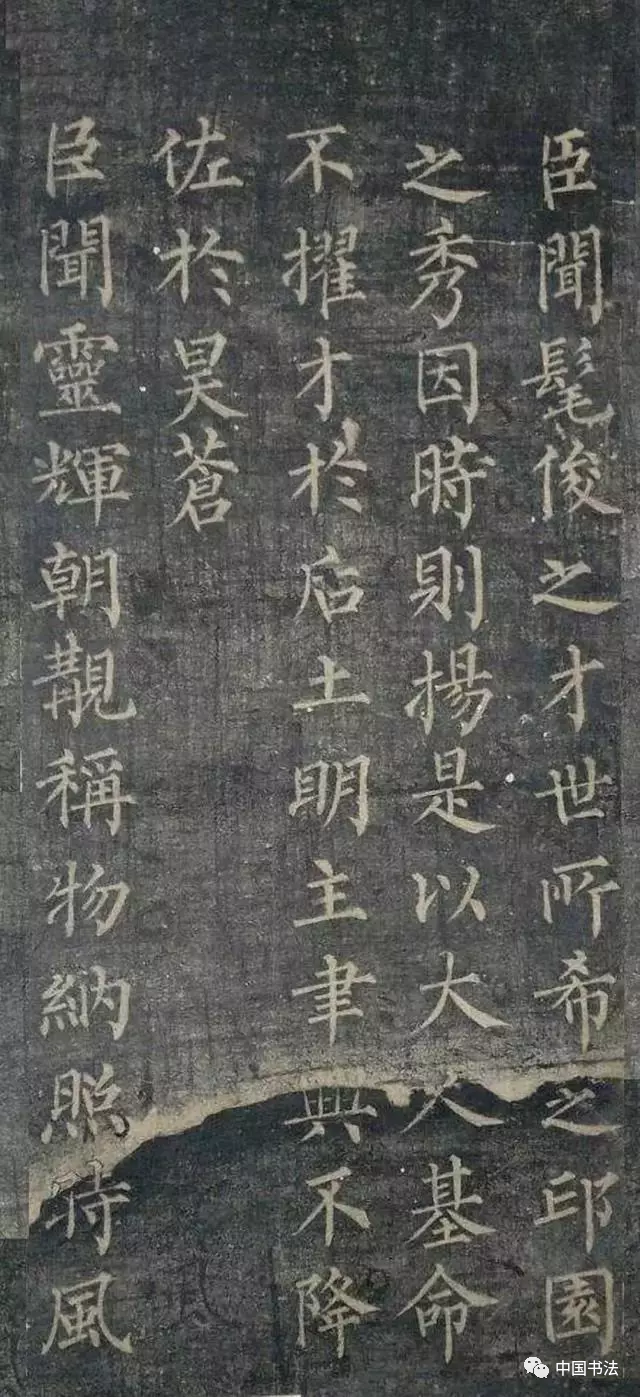 臣聞髦俊之才世所希之邱園
之秀因時則揚是以大人基命
不擢才於后土明主聿興不降
佐於昊蒼
臣聞靈輝朝覯稱物納照時風
中国书法